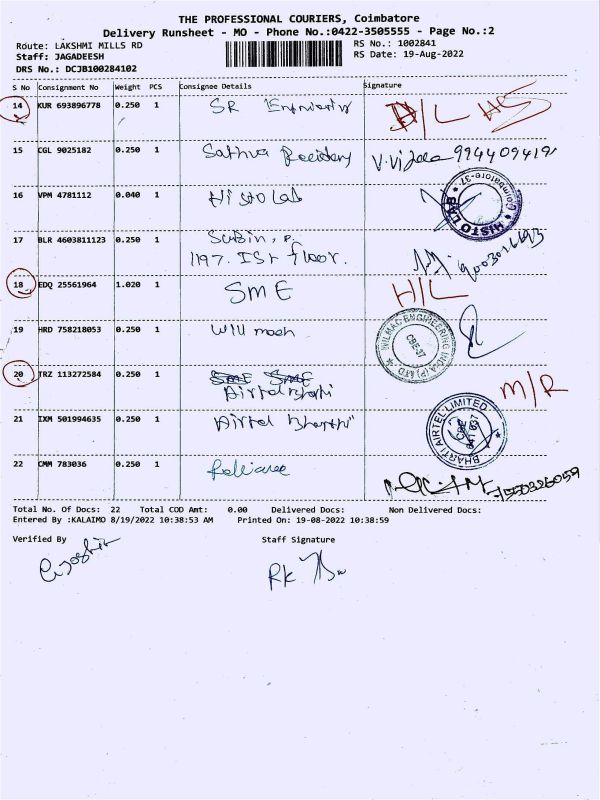 THE PROFESSIONAL COURIERS, Coimbatore
Delivery Runsheet - MO - Phone No.:0422-3505555 - Page No.:2
Route: LAKSHMI MILLS RD
Staff: JAGADEESH
DRS No.: DCJB100284102
RS No.: 1002841
RS Date: 19-Aug-2022
S No Consignment No Weight PCS Consignee Details Signature
14 KUR 693896778 0.250 1 SR H/L
15 CGL 9025182 0.250 1 Sathva
16 VPM 4781112 0.040 1 HistoLab
Coimbatore-37 HISTO LAB
17 BLR 4603811123 0.250 1 Subin, P.
1197. ISt floor.
18 EDQ 25561964 1.020 1 SME H/L
19 HRD 758218053 0.250 1 Will
WILMAC ENGINEERING INDIA (P) LTD CBE-37
20 TRZ 113272584 0.250 1 SME SME
Airtel M/R
21 IXM 501994635 0.250 1 Airtel
BHARTI AIRTEL LIMITED
22 CMM 783036 0.250 1 Reliance
Total No. Of Docs: 22 Total COD Amt: 0.00 Delivered Docs: Non Delivered Docs:
Entered By :KALAIMO 8/19/2022 10:38:53 AM Printed On: 19-08-2022 10:38:59
Verified By Staff Signature
RK